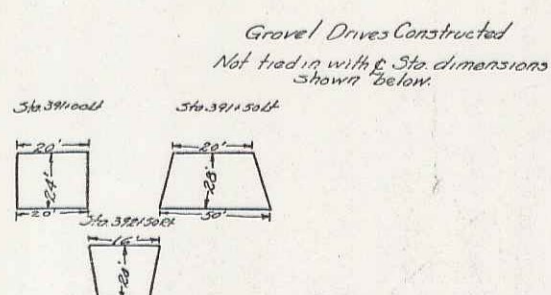 Gravel Drives Constructed
Not tied in with ℄ Sta. dimensions
shown below.
Sta. 391+00 Lt
Sta. 391+50 Lt
20'
20'
24'
28'
20'
50'
Sta. 392+50 Rt
16'